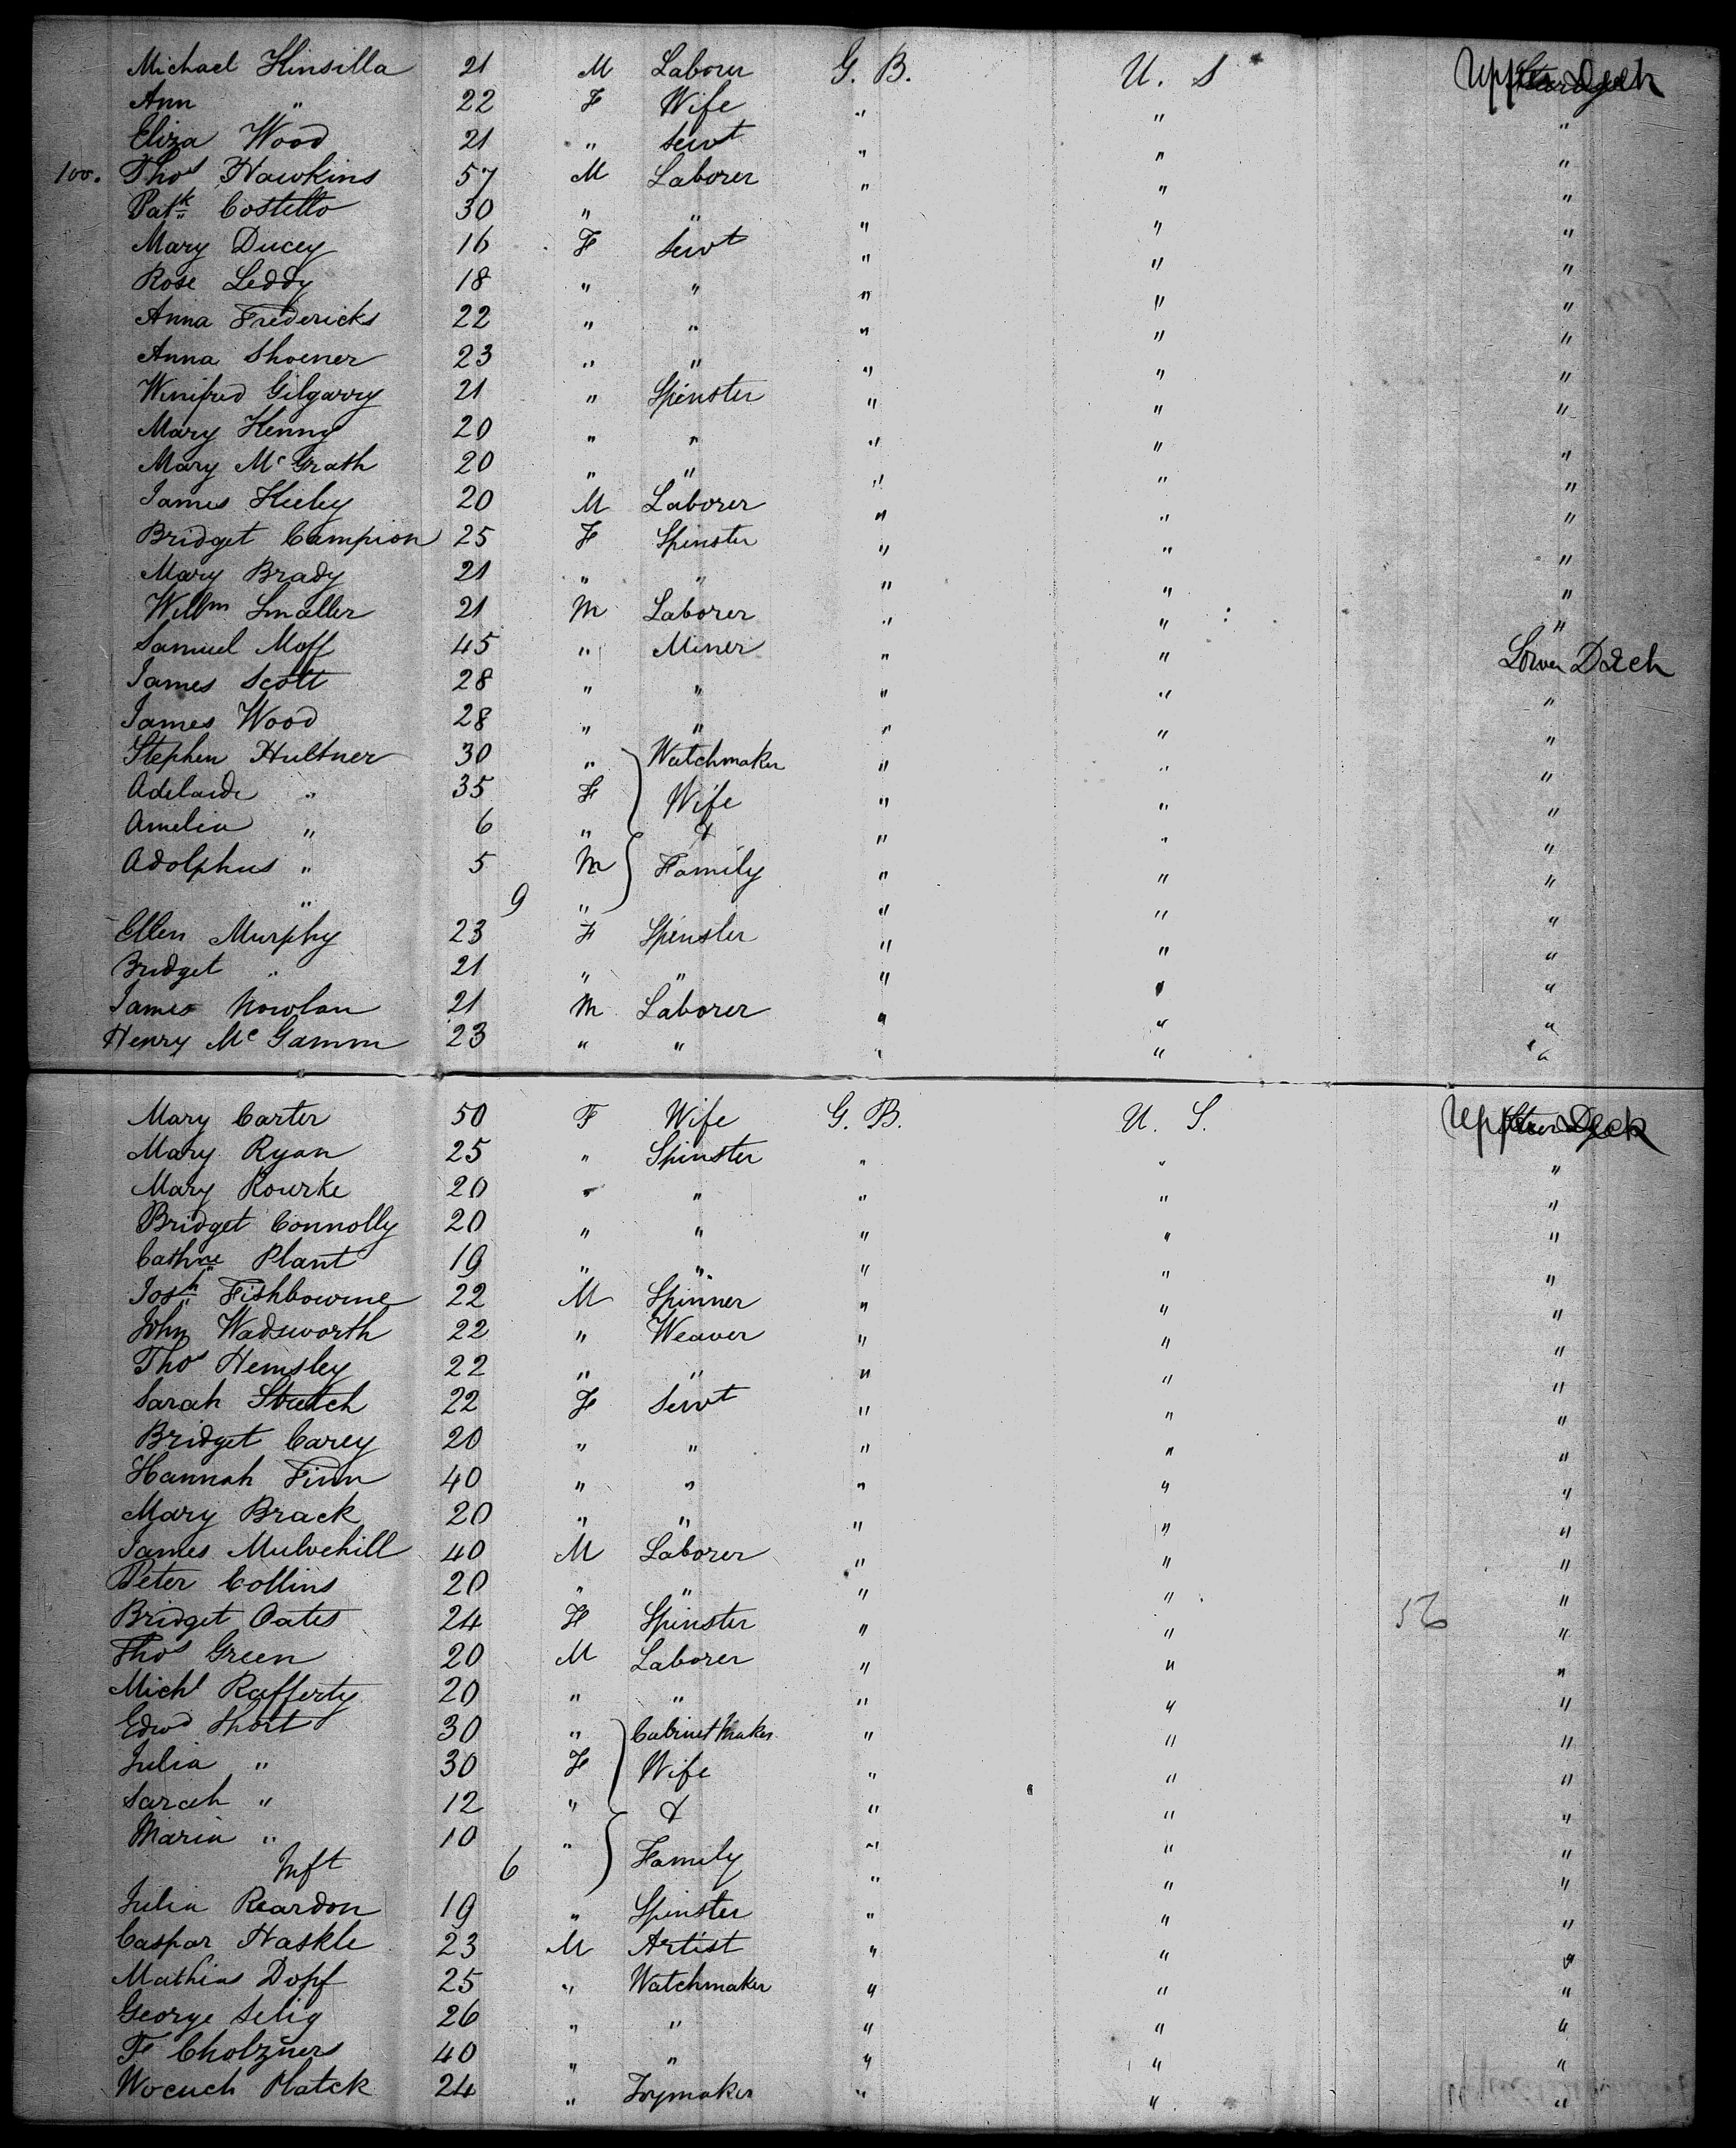 Michael Kinsilla 21 M Laborer G. B. U. S Upper Deck
Ann " 22 F Wife " " "
Eliza Wood 21 " Servt " " "
100. Thos Hawkins 57 M Laborer " " "
Patk Costello 30 " " " " "
Mary Ducey 16 F Servt " " "
Rose Leddy 18 " " " " "
Anna Fredericks 22 " " " " "
Anna Shoener 23 " " " " "
Winifred Gilgarry 21 " Spinster " " "
Mary Kenny 20 " " " " "
Mary McGrath 20 " " " " "
James Keeley 20 M Laborer " " "
Bridget Campion 25 F Spinster " " "
Mary Brady 21 " " " " "
Willm Smaller 21 M Laborer " " "
Samuel Moff 45 " Miner " " Lower Deck
James Scott 28 " " " " "
James Wood 28 " " " " "
Stephen Hultner 30 " Watchmaker " " "
Adelaide " 35 F Wife " " "
Amelia " 6 " & " " "
Adolphus " 5 M Family " " "
" 9 " " " "
Ellen Murphy 23 F Spinster " " "
Bridget " 21 " " " " "
James Nowlan 21 M Laborer " " "
Henry McGamm 23 " " " " "
Mary Carter 50 F Wife G. B. U. S. Upper Deck
Mary Ryan 25 " Spinster " " "
Mary Rourke 20 " " " " "
Bridget Connolly 20 " " " " "
Cathne Plant 19 " " " " "
Josh Fishbourne 22 M Spinner " " "
John Wadsworth 22 " Weaver " " "
Thos Hemsley 22 " " " " "
Sarah Stretch 22 F Servt " " "
Bridget Carey 20 " " " " "
Hannah Finn 40 " " " " "
Mary Brack 20 " " " " "
James Mulvehill 40 M Laborer " " "
Peter Collins 20 " " " " "
Bridget Oates 24 F Spinster " " "
Thos Green 20 M Laborer " " "
Michl Rafferty 20 " " " " "
Edwd Short 30 " Cabinet Maker " " "
Julia " 30 F Wife " " "
Sarah " 12 " & " " "
Maria " 10 " " " "
Inft 6 Family " " "
Julia Reardon 19 " Spinster " " "
Caspar Haskle 23 M Artist " " "
Mathias Dopf 25 " Watchmaker " " "
George Selig 26 " " " " "
F Cholzners 40 " " " " "
Wocuch Platek 24 " Toymaker " " "